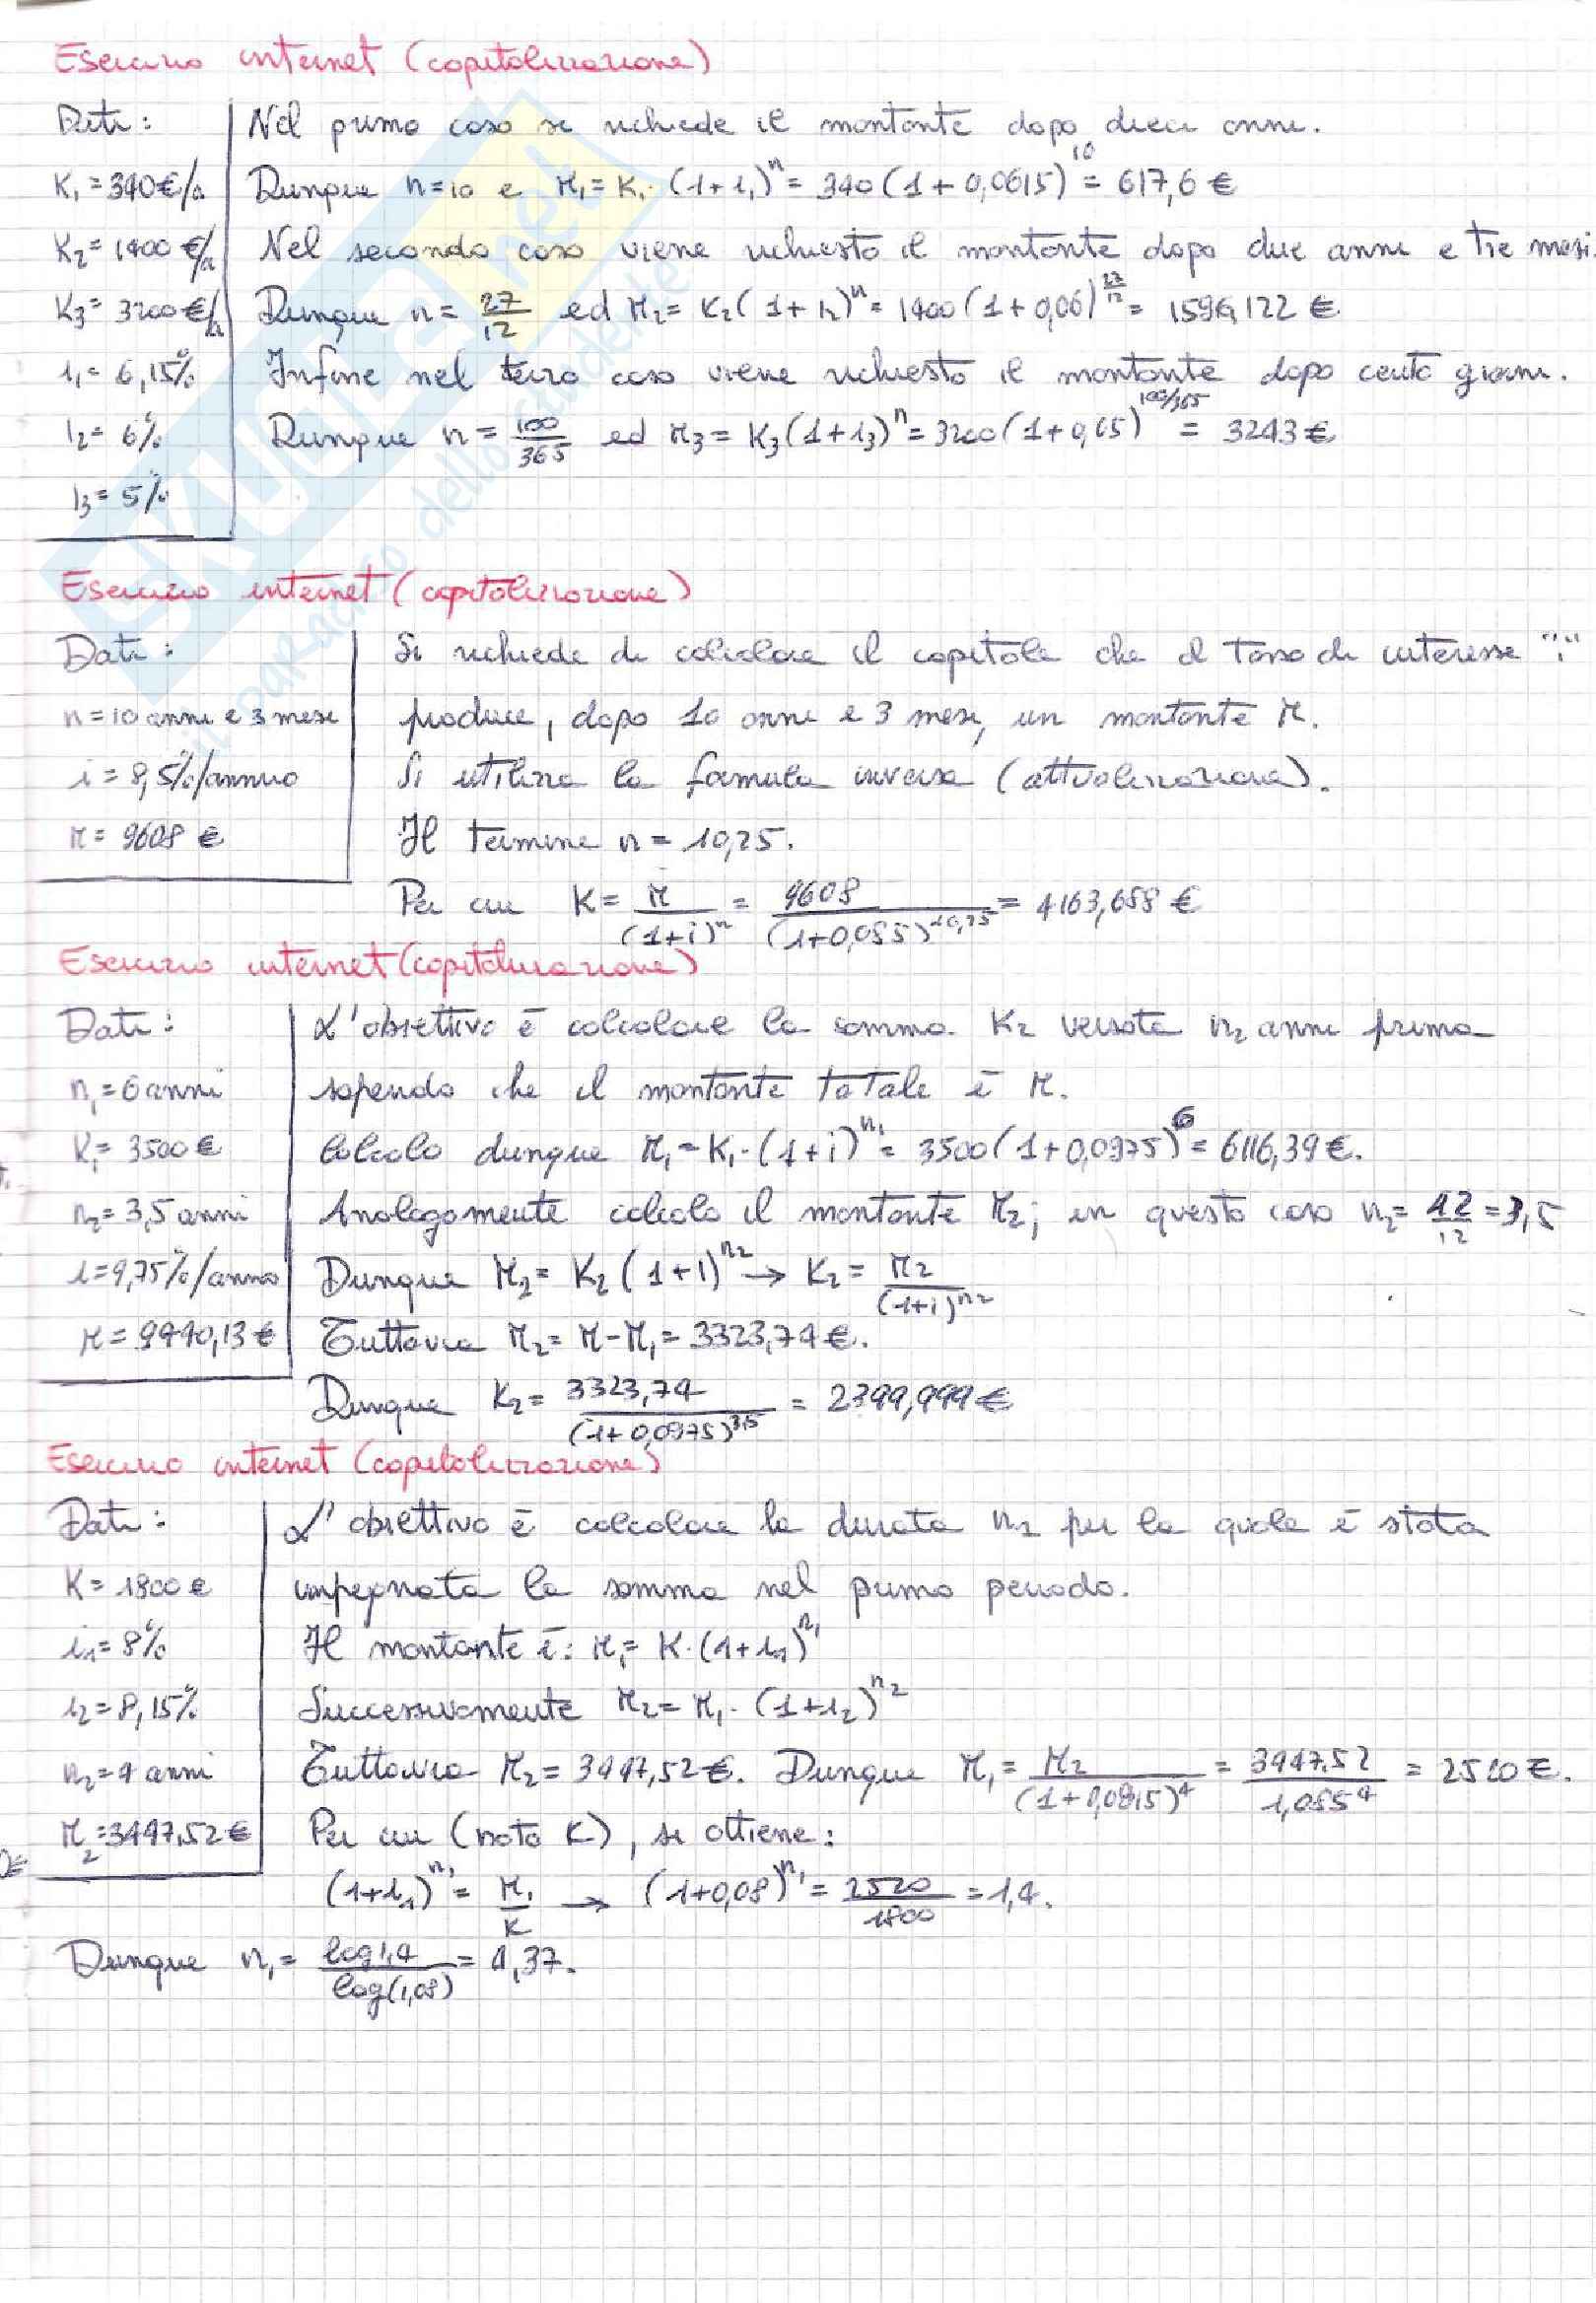 Esercizio internet (capitalizzazione)
Dati:
K₁ = 340 €/a
K₂ = 1400 €/a
K₃ = 3200 €/a
i₁ = 6,15%
i₂ = 6%
i₃ = 5%
Nel primo caso si richiede il montante dopo dieci anni.
Dunque n=10 e M₁ = K₁·(1+i₁)ⁿ = 340(1+0,0615)¹⁰ = 617,6 €
Nel secondo caso viene richiesto il montante dopo due anni e tre mesi.
Dunque n = 27/12 ed M₂ = K₂(1+i₂)ⁿ = 1400(1+0,06)^27/12 = 1596,122 €
Infine nel terzo caso viene richiesto il montante dopo cento giorni.
Dunque n = 100/365 ed M₃ = K₃(1+i₃)ⁿ = 3200(1+0,05)^100/365 = 3243 €
Esercizio internet (capitalizzazione)
Dati:
n = 10 anni e 3 mesi
i = 8,5%/annuo
M = 9608 €
Si richiede di calcolare il capitale che al tasso di interesse "i"
produce, dopo 10 anni e 3 mesi, un montante M.
Si utilizza la formula inversa (attualizzazione).
Il termine n = 10,25.
Per cui K = M/(1+i)ⁿ = 9608/(1+0,085)^10,25 = 4163,658 €
Esercizio internet (capitalizzazione)
Dati:
n₁ = 6 anni
K₁ = 3500 €
n₂ = 3,5 anni
i = 9,75%/annuo
M = 9440,13 €
L'obiettivo è calcolare la somma K₂ versata n₂ anni prima
sapendo che il montante totale è M.
Calcolo dunque M₁ = K₁·(1+i)^n₁ = 3500(1+0,0975)⁶ = 6116,39 €.
Analogamente calcolo il montante M₂; in questo caso n₂ = 42/12 = 3,5
Dunque M₂ = K₂(1+i)^n₂ → K₂ = M₂/(1+i)^n₂
Tuttavia M₂ = M-M₁ = 3323,74 €.
Dunque K₂ = 3323,74/(1+0,0975)^3,5 = 2399,999 €
Esercizio internet (capitalizzazione)
Dati:
K = 1800 €
i₁ = 8%
i₂ = 8,15%
n₂ = 4 anni
M₂ = 3447,52 €
L'obiettivo è calcolare la durata n₂ per la quale è stata
impegnata la somma nel primo periodo.
Il montante è: M₁ = K·(1+i₁)^n₁
Successivamente M₂ = M₁·(1+i₂)^n₂
Tuttavia M₂ = 3447,52 €. Dunque M₁ = M₂/(1+0,0815)⁴ = 3447,52/1,085⁴ = 2520 €.
Per cui (noto K), si ottiene:
(1+i₁)^n₁ = M₁/K → (1+0,08)^n₁ = 2520/1800 = 1,4.
Dunque n₁ = log1,4/log(1,08) = 4,37.
SKUOLA.net
il paradiso dello studente